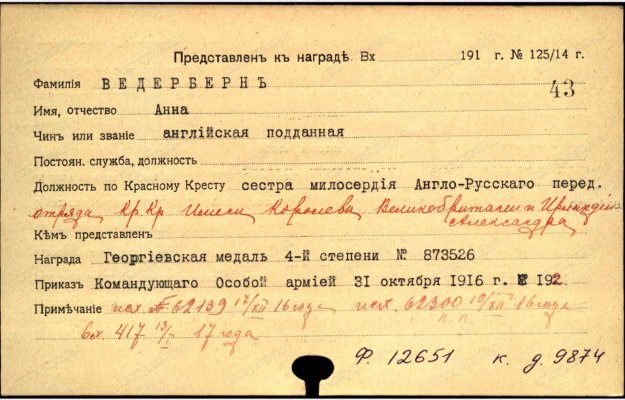 Представленъ къ наградѣ Вх 191 г. № 125/14 г.
Фамилія ВЕДЕРБЕРНЪ
43
Имя, отчество Анна
Чин или званіе англійская подданная
Постоян. служба, должность
Должность по Красному Кресту сестра милосердія Англо-Русскаго перед.
отряда Кр. Кр Имени Королевы Великобритании и Ирландіи
Александра
Кѣмъ представленъ
Награда Георгіевская медаль 4-й степени № 873526
Приказ Командующаго Особой арміей 31 октября 1916 г. № 192
Примѣчаніе исх. № 62139 17/XII 16 года исх. 62300 19/XII 16 года
п.п
Вх. 417 13/I 17 года
Ф. 12651 к. д. 9874